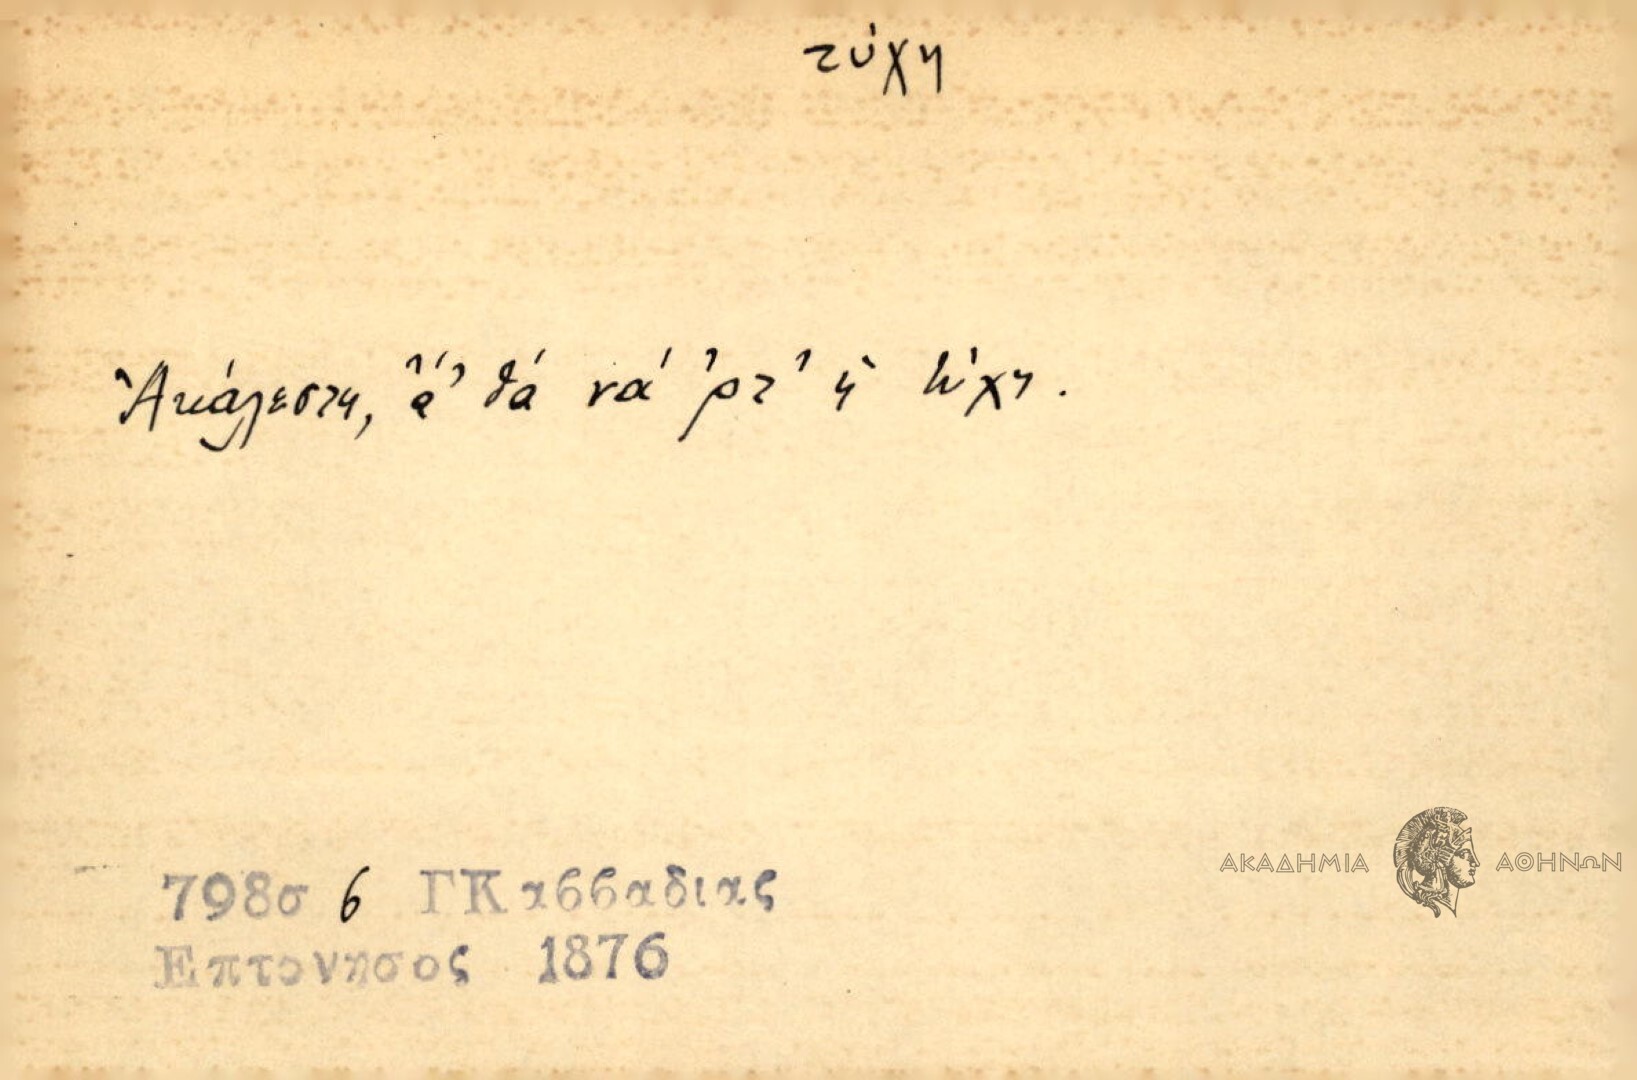 τύχη
Ἀκάλεστη, ἂ' θά νά 'ρτ' ἡ τύχη.
798σ 6 ΓΚαββαδιας
Επτονησος 1876
ΑΚΑΔΗΜΙΑ ΑΘΗΝΩΝ